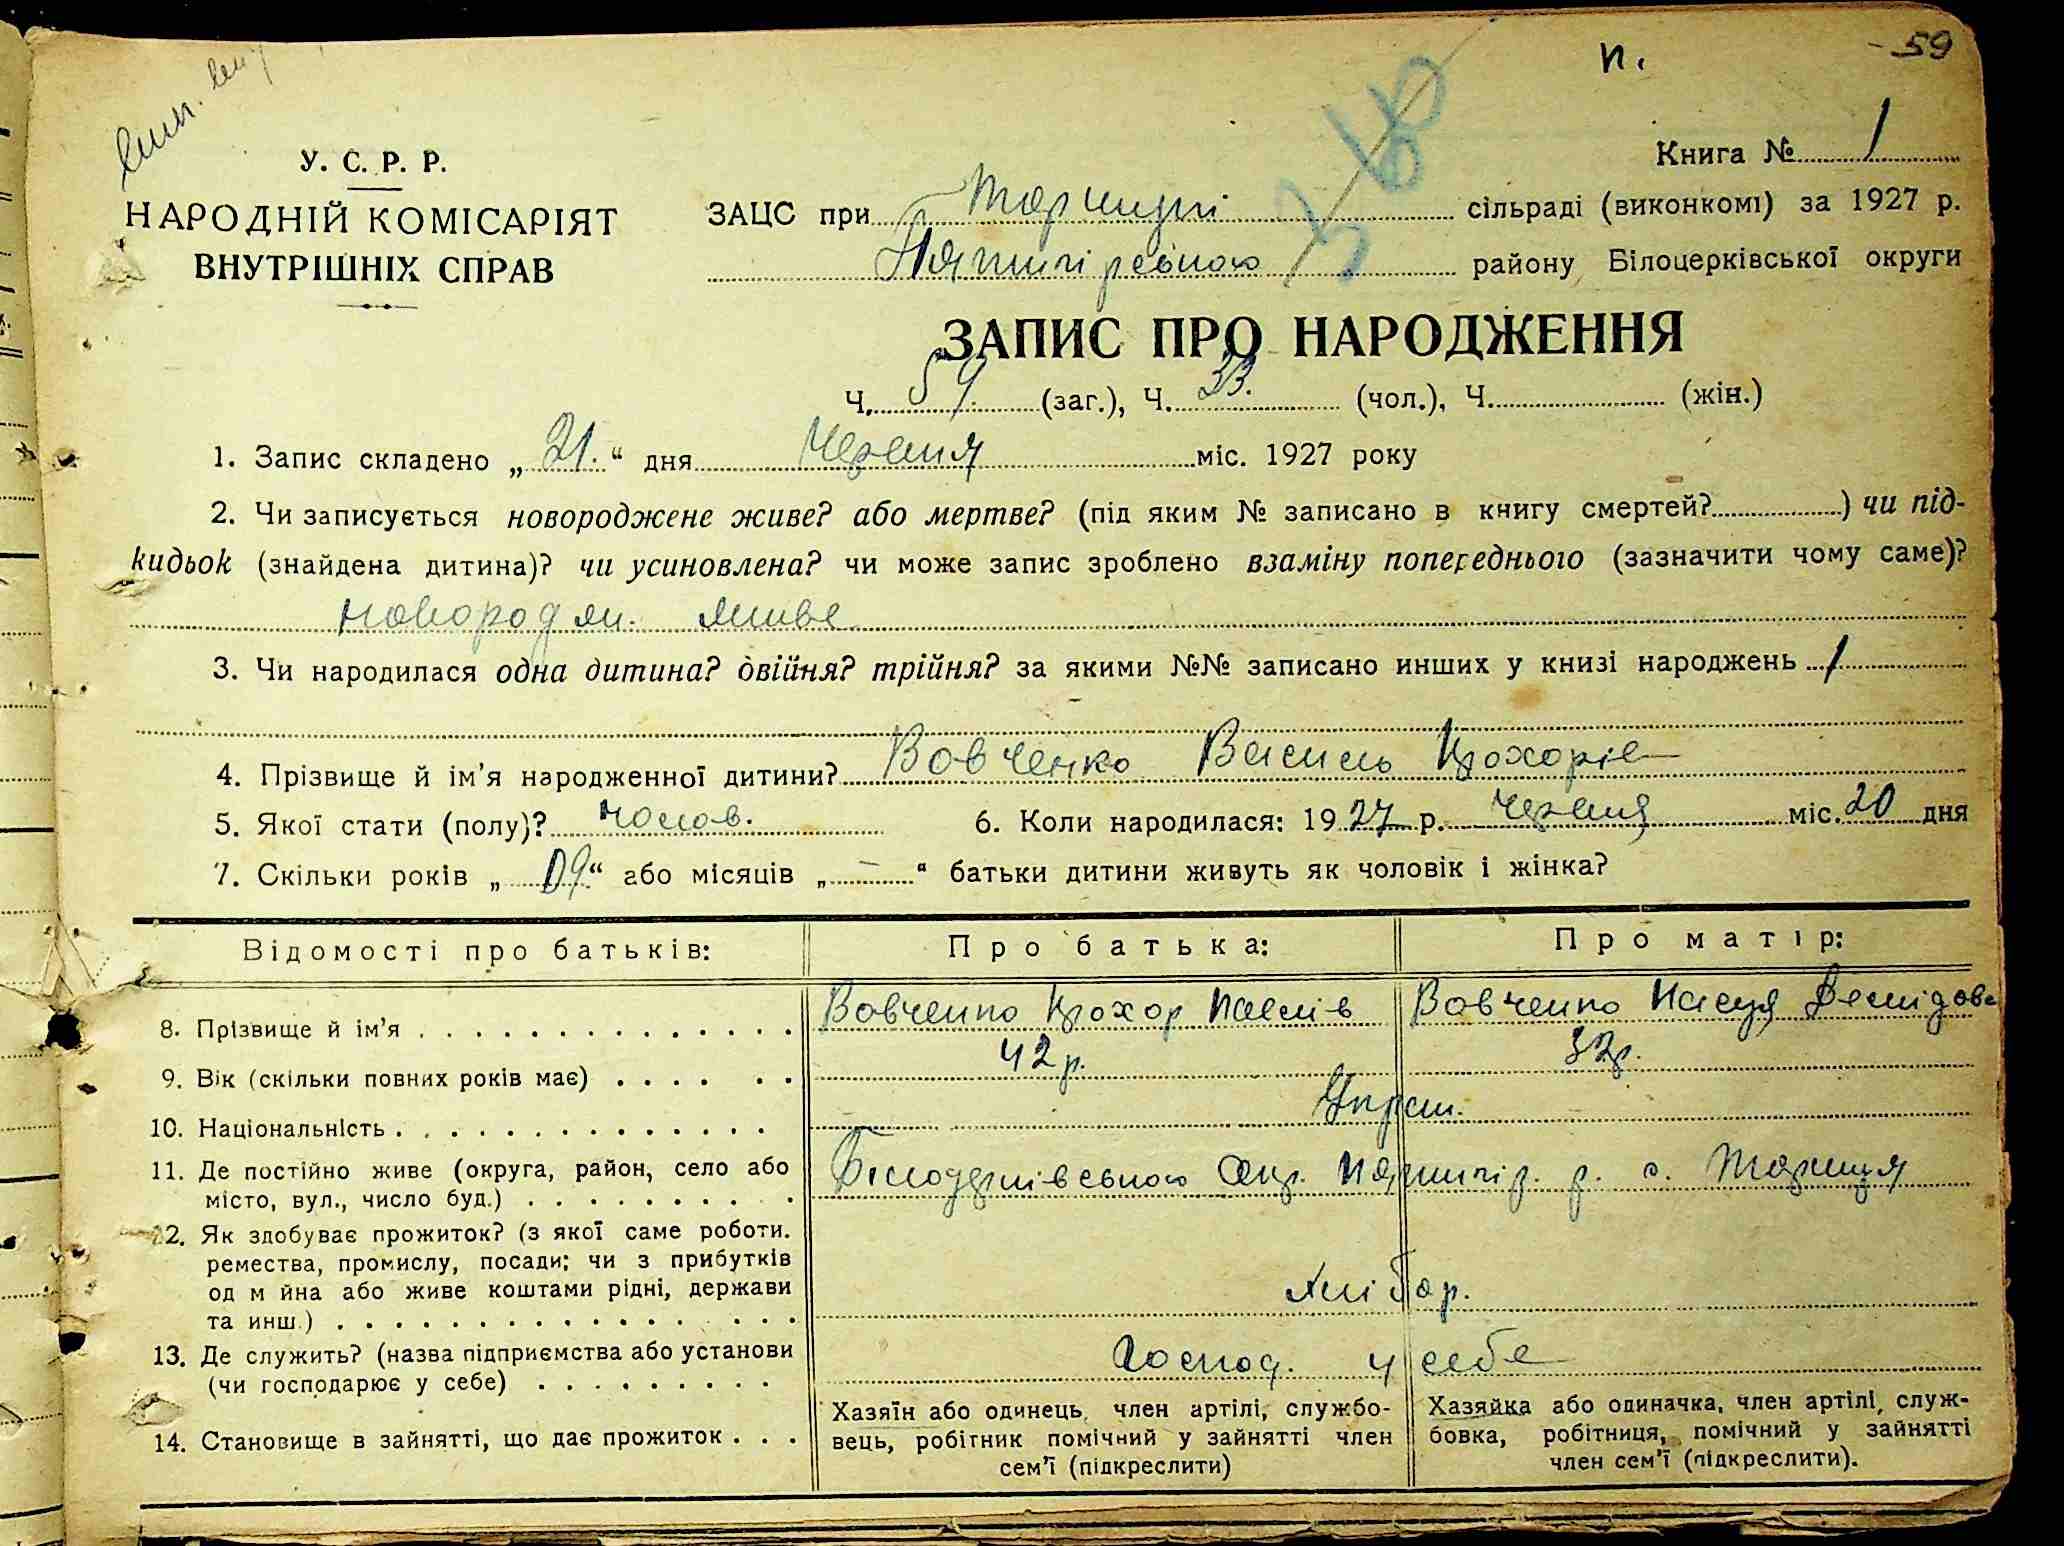 п.
59
У. С. Р. Р.
НАРОДНІЙ КОМІСАРІЯТ
ВНУТРІШНІХ СПРАВ
Книга № 1
ЗАЦС при Торчицькі сільраді (виконкомі) за 1927 р.
Пятигірською району Білоцерківської округи
ЗАПИС ПРО НАРОДЖЕННЯ
Ч. 59 (заг.), Ч. 33. (чол.), Ч. (жін.)
1. Запис складено „21.“ дня Червня міс. 1927 року
2. Чи записується новороджене живе? або мертве? (під яким № записано в книгу смертей? ) чи під-
кидьок (знайдена дитина)? чи усиновлена? чи може запис зроблено взаміну попереднього (зазначити чому саме)?
новородж. живе
3. Чи народилася одна дитина? двійня? трійня? за якими №№ записано инших у книзі народжень 1
4. Прізвище й ім’я народженної дитини? Вовченко Василь Прохорів
5. Якої стати (полу)? чолов. 6. Коли народилася: 1927 р. червня міс. 20 дня
7. Скільки років „ “ або місяців „ — “ батьки дитини живуть як чоловік і жінка?
Відомості про батьків: Про батька: Про матір:
8. Прізвище й ім’я Вовченко Прохор Павлів Вовченко Настя Демідова
9. Вік (скільки повних років має) 42 р. 32 р.
10. Національність Украш.
11. Де постійно живе (округа, район, село або
місто, вул., число буд.) Білоцерківською Окр. Пятигір. р. с. Торчиця
12. Як здобуває прожиток? (з якої саме роботи.
ремества, промислу, посади; чи з прибутків
од м йна або живе коштами рідні, держави
та инш.) Хлібор.
13. Де служить? (назва підприємства або установи
(чи господарює у себе) Господ. у себе
14. Становище в зайнятті, що дає прожиток
Хазяїн або одинець, член артілі, службо-
вець, робітник помічний у зайнятті член
сем’ї (підкреслити)
Хазяйка або одиначка, член артілі, служ-
бовка, робітниця, помічний у зайнятті
член сем’ї (підкреслити).